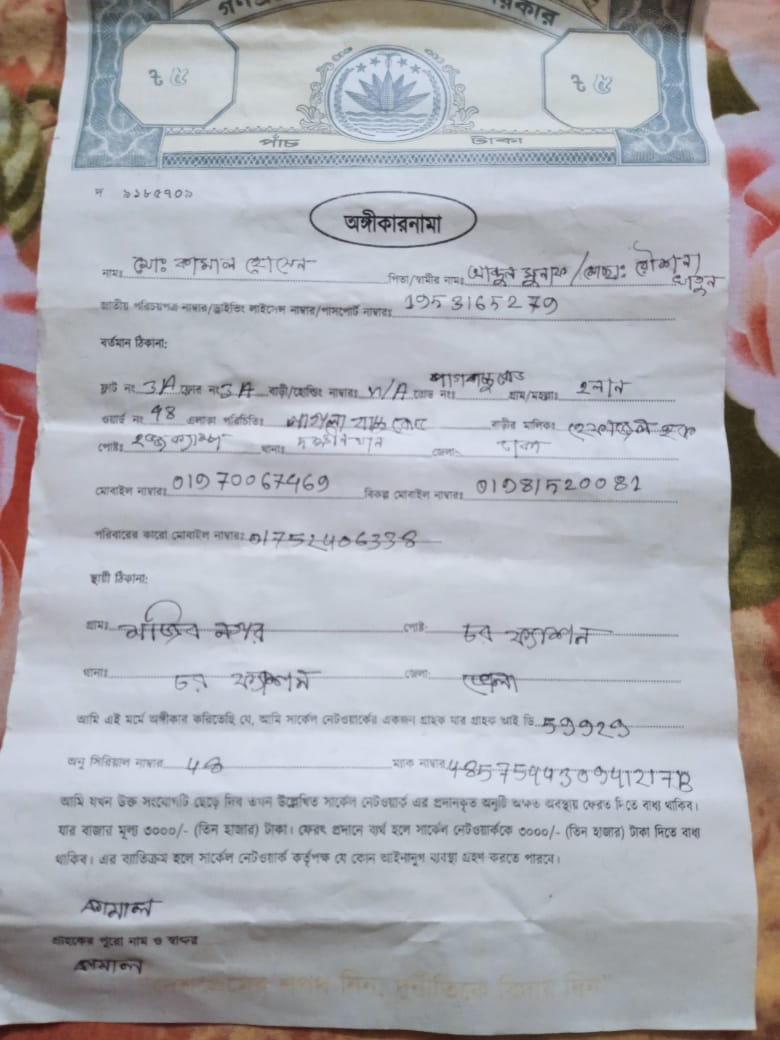 ৳ ৫ ৳ ৫
পাঁচ টাকা
দ ৯১৮৫৭০৯
অঙ্গীকারনামা
নামঃ মোঃ কামাল হোসেন পিতা/স্বামীর নামঃ আব্দুল মুনাফ / মোছাঃ রৌশনা খাতুন
জাতীয় পরিচয়পত্র নাম্বার/ড্রাইভিং লাইসেন্স নাম্বার/পাসপোর্ট নাম্বারঃ 1953165279
বর্তমান ঠিকানা:
ফ্লাট নং 3A ফ্লোর নং 3A বাড়ী/হোল্ডিং নাম্বারঃ N/A রোড নংঃ গ্রাম/মহল্লাঃ হলান
ওয়ার্ড নং 48 এলাকা পরিচিতিঃ বাড়ীর মালিকঃ হক
পোষ্টঃ হজ্জ ক্যাম্প থানাঃ দক্ষিনখান জেলাঃ ঢাকা
মোবাইল নাম্বারঃ 01970067469 বিকল্প মোবাইল নাম্বারঃ 01981520082
পরিবারের কারো মোবাইল নাম্বারঃ 01752406338
স্থায়ী ঠিকানা:
গ্রামঃ মুজিব নগর পোষ্ট: চর ফ্যাশন
থানাঃ চর ফ্যাশন জেলা: ভোলা
আমি এই মর্মে অঙ্গীকার করিতেছি যে, আমি সার্কেল নেটওয়ার্কের একজন গ্রাহক যার গ্রাহক আই ডি 59929
অনু সিরিয়াল নাম্বার 48 ম্যাক নাম্বার 485754430941217B
আমি যখন উক্ত সংযোগটি ছেড়ে দিব তখন উল্লেখিত সার্কেল নেটওয়ার্ক এর প্রদানকৃত অনুটি অক্ষত অবস্থায় ফেরত দিতে বাধ্য থাকিব।
যার বাজার মূল্য ৩০০০/- (তিন হাজার) টাকা। ফেরৎ প্রদানে ব্যর্থ হলে সার্কেল নেটওয়ার্ককে ৩০০০/- (তিন হাজার) টাকা দিতে বাধ্য
থাকিব। এর ব্যতিক্রম হলে সার্কেল নেটওয়ার্ক কর্তৃপক্ষ যে কোন আইনানুগ ব্যবস্থা গ্রহণ করতে পারবে।
কামাল
গ্রাহকের পুরো নাম ও স্বাক্ষর
কামাল
"দেশপ্রেমের শপথ নিন, দুর্নীতিকে বিদায় দিন"